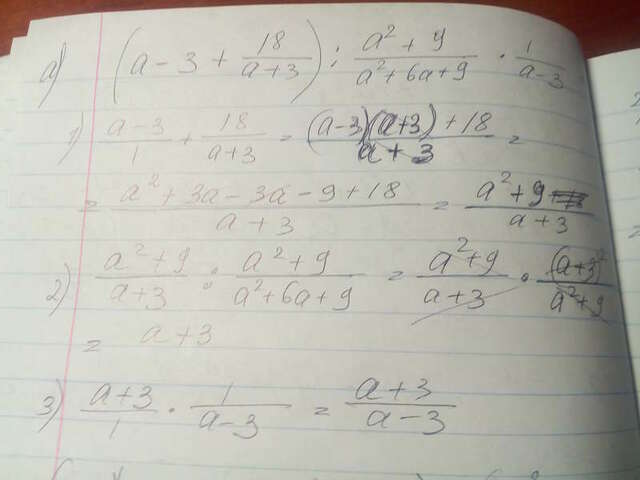 а) (a - 3 + 18/(a+3)) : (a² + 9)/(a² + 6a + 9) · 1/(a-3)
1) (a-3)/1 + 18/(a+3) = ((a-3)(a+3) + 18)/(a+3) =
= (a² + 3a - 3a - 9 + 18)/(a+3) = (a² + 9)/(a+3)
2) (a² + 9)/(a+3) : (a² + 9)/(a² + 6a + 9) = (a² + 9)/(a+3) · (a+3)²/(a² + 9)
= a + 3
3) (a+3)/1 · 1/(a-3) = (a+3)/(a-3)